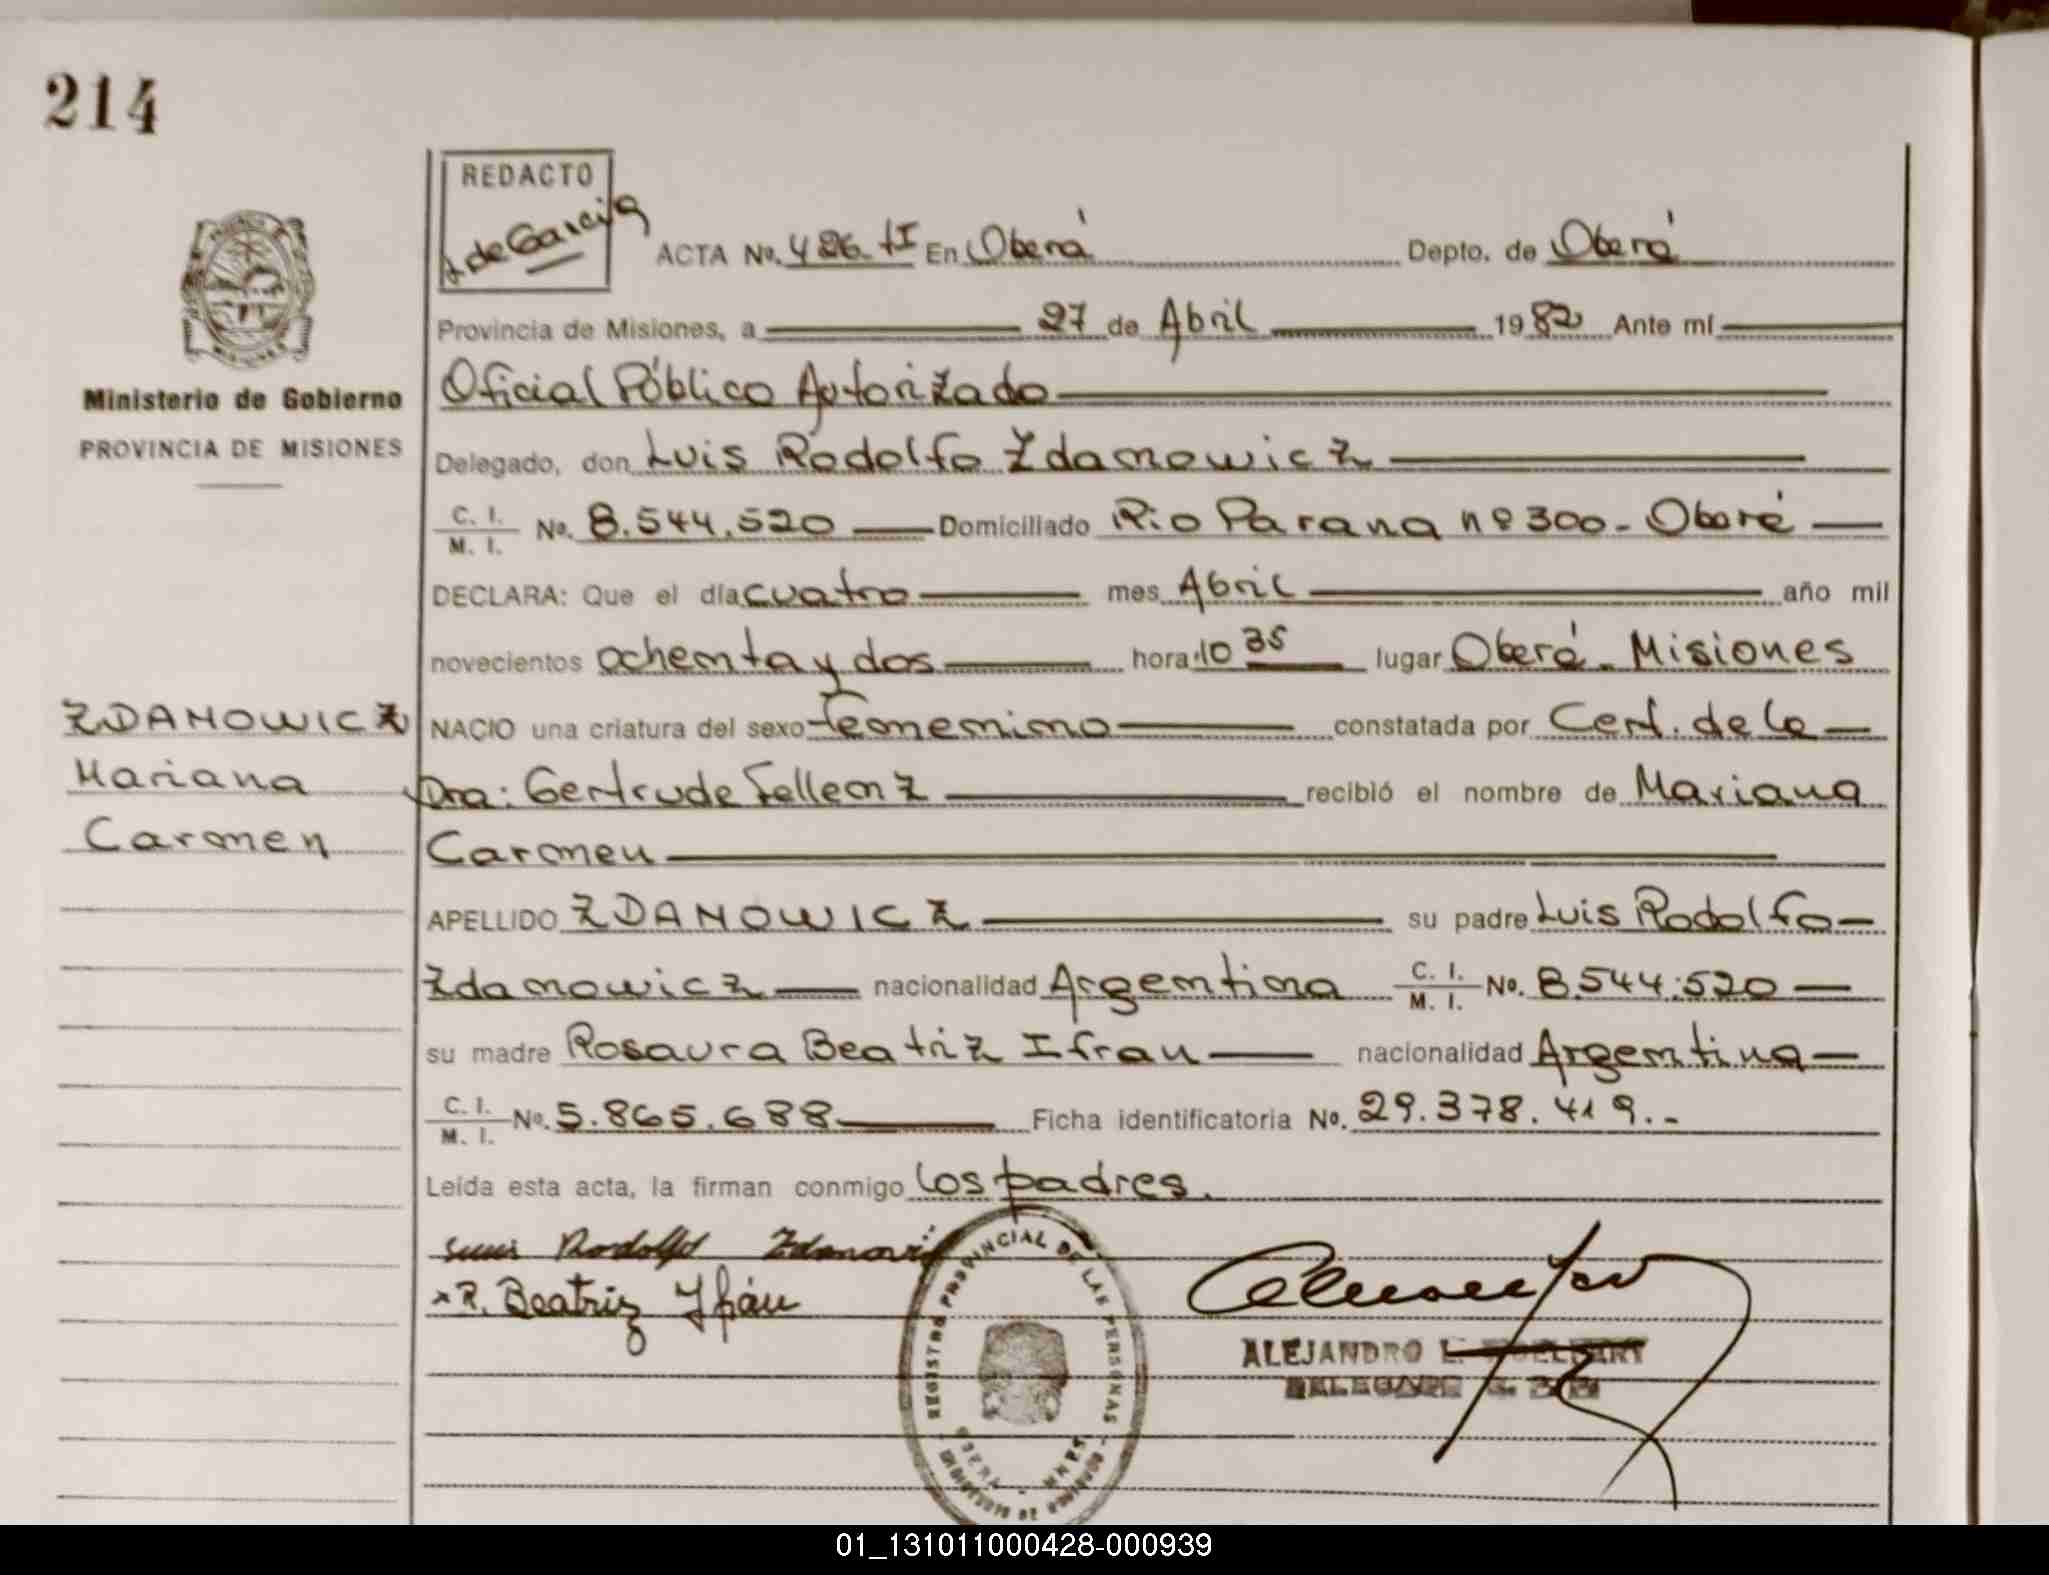 214
REDACTO
de Garcia
ACTA No. 426 tI En Oberá Depto. de Oberá
Provincia de Misiones, a 27 de Abril 1982 Ante mí
Oficial Público Autorizado
Delegado, don Luis Rodolfo Zdanowicz
C. I. / M. I. No. 8.544.520 Domiciliado Rio Parana nº 300 - Oberá
DECLARA: Que el día cuatro mes Abril año mil
novecientos ochenta y dos hora 10 35 lugar Oberá - Misiones
NACIO una criatura del sexo femenino constatada por Cert. de la
Dra: Gertrude Fellenz recibió el nombre de Mariana
Carmen
APELLIDO ZDANOWICZ su padre Luis Rodolfo
Zdanowicz nacionalidad Argentina C. I. / M. I. No. 8.544.520
su madre Rosaura Beatriz Ifran nacionalidad Argentina
C. I. / M. I. No. 5.865.688 Ficha identificatoria No. 29.378.419.-
Leída esta acta, la firman conmigo los padres.
Luis Rodolfo Zdanowi
x R. Beatriz Ifrán
ALEJANDRO L.
DELEGADO
REGISTRO PROVINCIAL DE LAS PERSONAS
OBERA - MNES.
Ministerio de Gobierno
PROVINCIA DE MISIONES
ZDANOWICZ
Mariana
Carmen
MISIONES
01_131011000428-000939